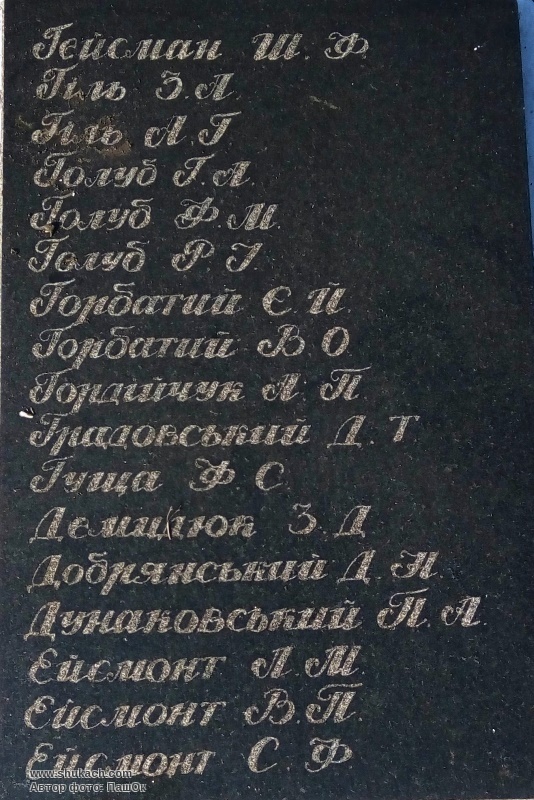 Гейсман Ш. Ф.
Гіль З. А.
Гіль А. Г
Голуб Г. А.
Голуб Ф. М.
Голуб Р. І.
Горбатий Є. Й.
Горбатий В. О
Гордійчук А. П
Градовський Д. Т
Гуща Ф. С.
Демидюк З. Д
Добрянський Д. Н.
Дунаковський П. А.
Ейсмонт Л. М.
Ейсмонт В. П.
Ейсмонт С. Ф
www.shukach.com
Автор фото: ПашОк